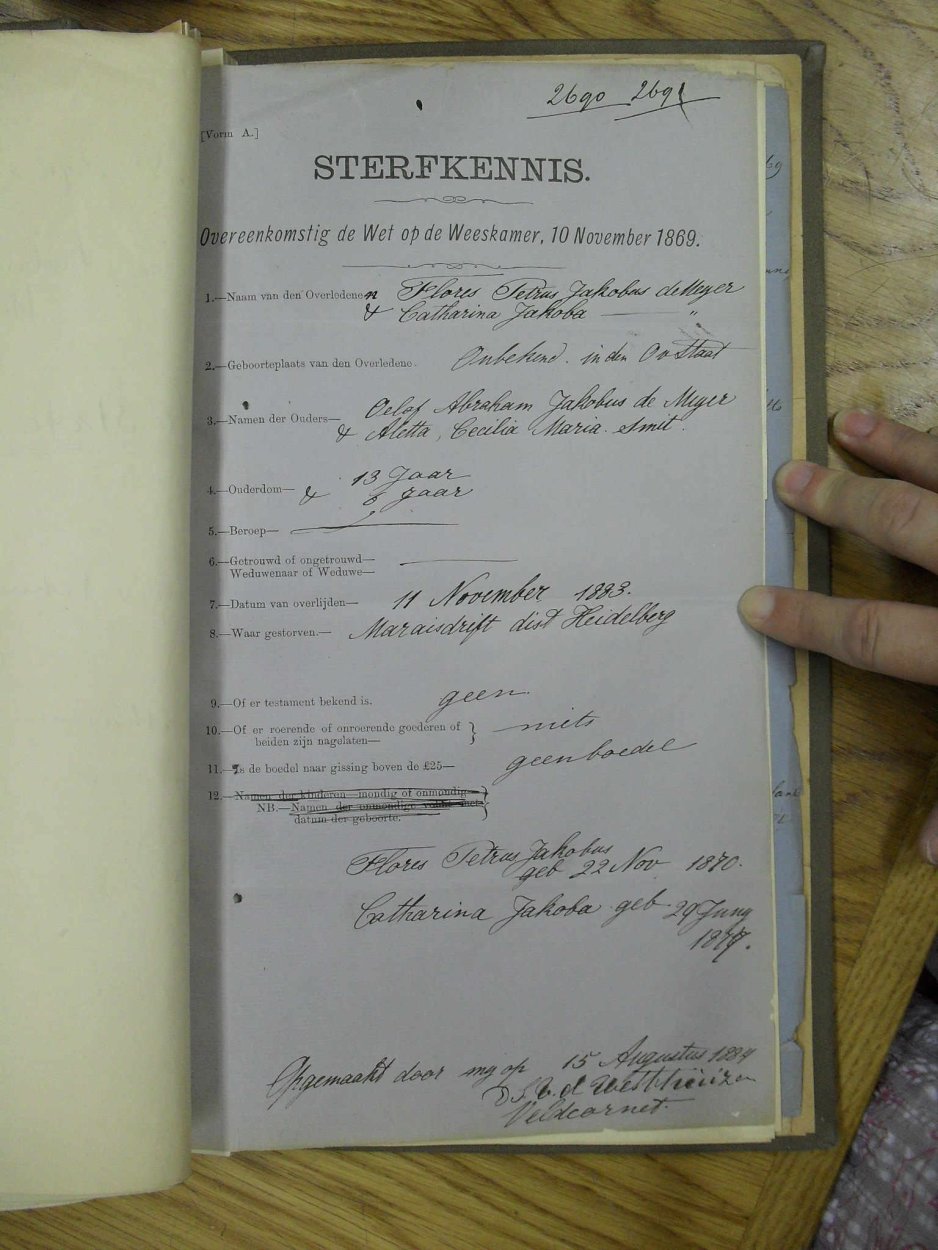 2690 2691
[Vorm A.]
STERFKENNIS.
Overeenkomstig de Wet op de Weeskamer, 10 November 1869.
1.—Naam van den Overledenen Flores Petrus Jakobus de Meyer
& Catharina Jakoba — "
2.—Geboorteplaats van den Overledene. Onbekend. in den Ov Staat
3.—Namen der Ouders— Oelof Abraham Jakobus de Meyer
& Aletta, Cecilia Maria Smit.
4.—Ouderdom— 13 Jaar
& 6 Jaar
5.—Beroep—
6.—Getrouwd of ongetrouwd—
Weduwenaar of Weduwe—
7.—Datum van overlijden— 11 November 1883.
8.—Waar gestorven.— Maraisdrift dist Heidelberg
9.—Of er testament bekend is. geen
10.—Of er roerende of onroerende goederen of
beiden zijn nagelaten— } niets
11.—Is de boedel naar gissing boven de £25— geen boedel
12.—Namen der kinderen—mondig of onmondig
NB.—Namen der onmondige met
datum der geboorte. }
Flores Petrus Jakobus
geb 22 Nov 1870.
Catharina Jakoba geb 29 Juny
1877.
Opgemaakt door my op 15 Augustus 1884
v. d. Westhuizen
Veldcornet.